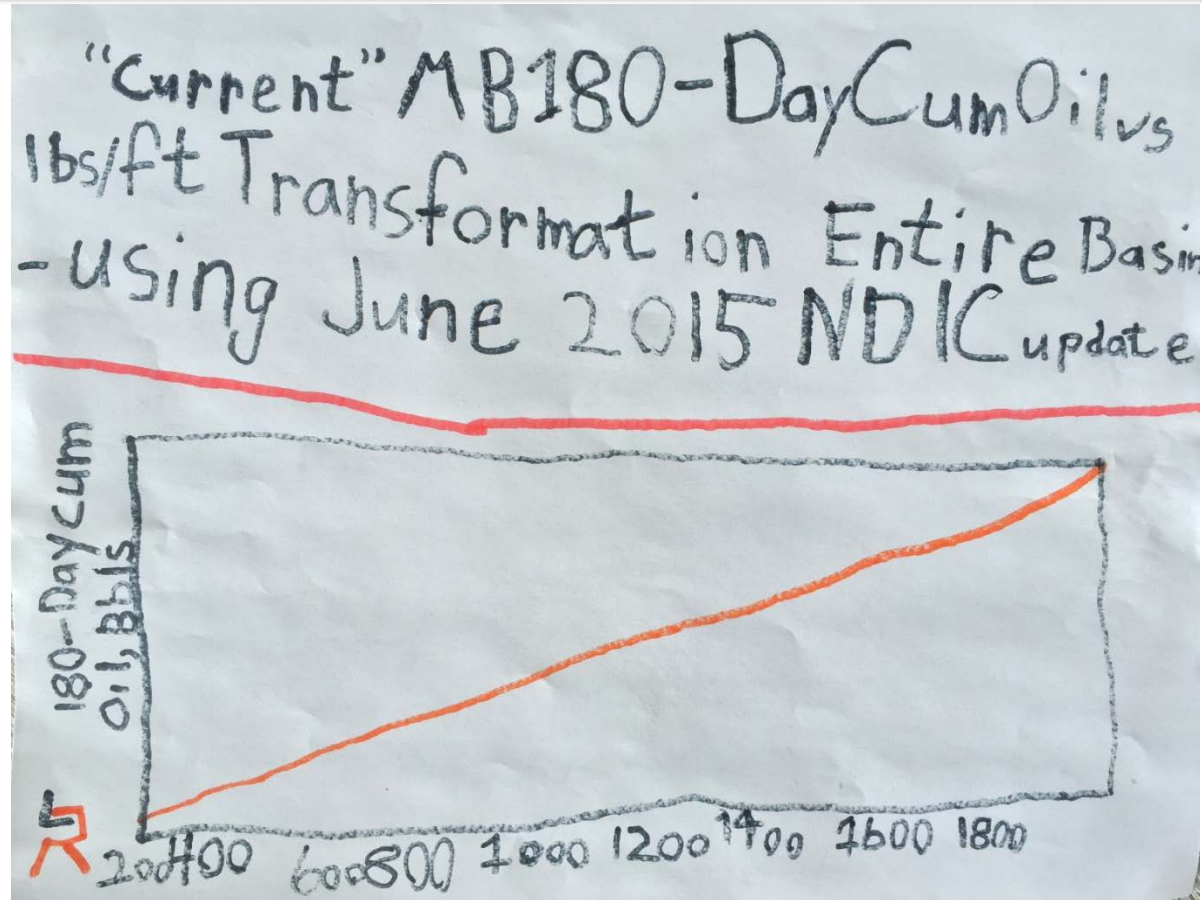 "Current" MB180-DayCumOil vs
lbs/ft Transformation Entire Basin
-using June 2015 NDIC update
180-Day Cum
Oil, Bbls
200 400 600 800 1000 1200 1400 1600 1800